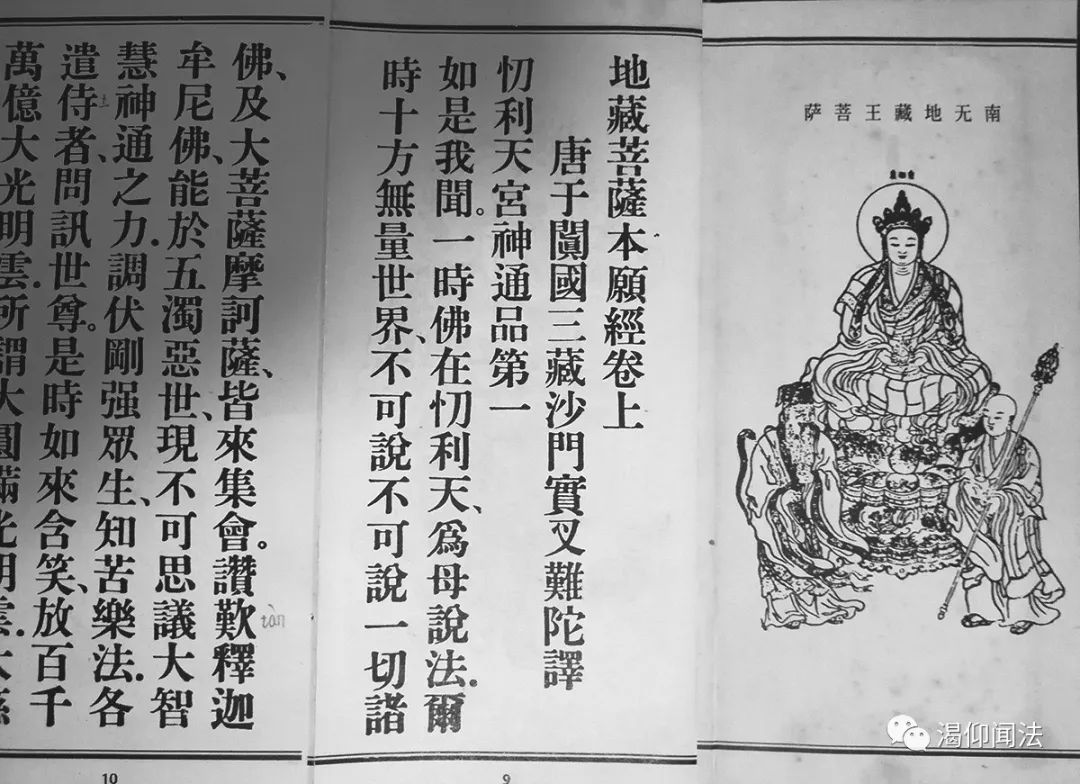 南无地藏王菩萨
地藏菩薩本願經卷上
唐于闐國三藏沙門實叉難陀譯
忉利天宮神通品第一
如是我聞。一時佛在忉利天、爲母說法。爾
時十方無量世界、不可說不可說一切諸
9
佛、及大菩薩摩訶薩、皆來集會。讚歎釋迦
tàn
牟尼佛、能於五濁惡世、現不可思議大智
慧神通之力、調伏剛强眾生、知苦樂法。各
遣侍者、問訊世尊。是時如來含笑、放百千
萬億大光明雲。所謂大圓滿光明雲。大
10
渴仰闻法